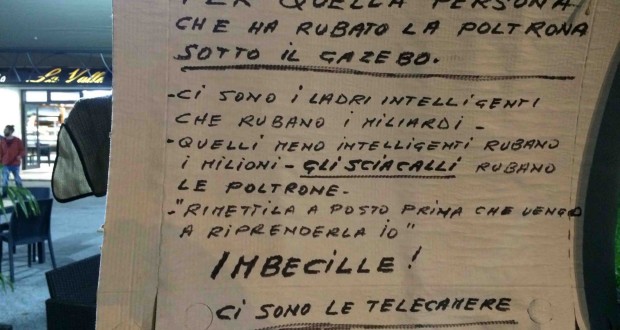 PER QUELLA PERSONA
CHE HA RUBATO LA POLTRONA
SOTTO IL GAZEBO.
-CI SONO I LADRI INTELLIGENTI
CHE RUBANO I MILIARDI-
-QUELLI MENO INTELLIGENTI RUBANO
I MILIONI-GLI SCIACALLI RUBANO
LE POLTRONE.
-"RIMETTILA A POSTO PRIMA CHE VENGO
A RIPRENDERLA IO"
IMBECILLE!
CI SONO LE TELECAMERE
La Valle